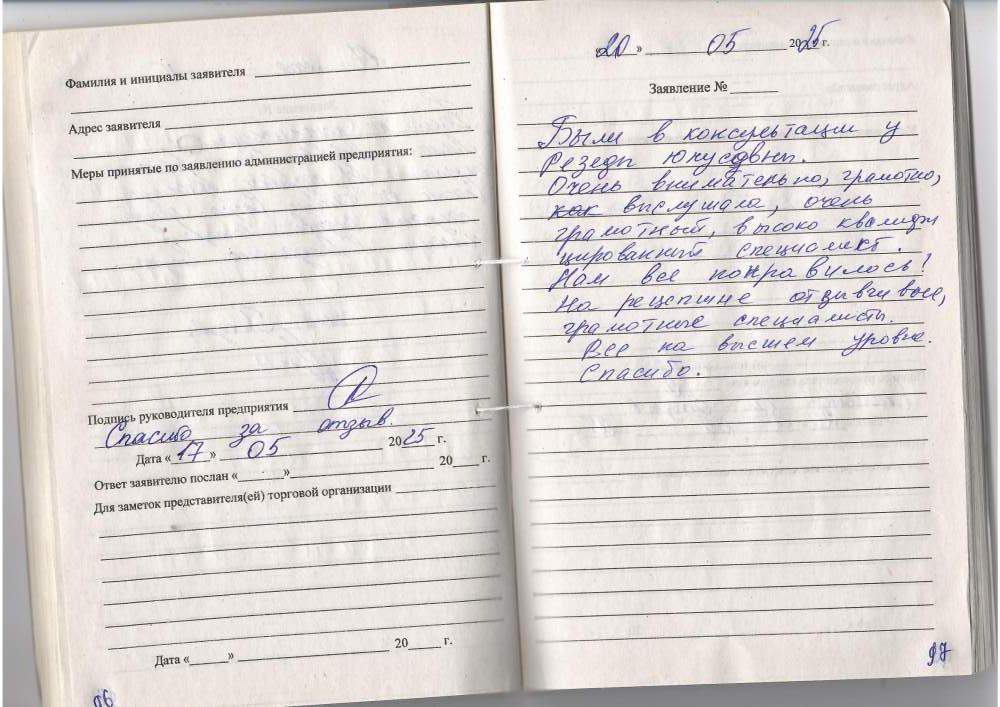 Фамилия и инициалы заявителя
Адрес заявителя
Меры принятые по заявлению администрацией предприятия:
Подпись руководителя предприятия
Спасибо за отзыв.
Дата «17» 05 2025 г.
Ответ заявителю послан «» 20 г.
Для заметок представителя(ей) торговой организации
Дата «» 20 г.
96
«20» 05 2025 г.
Заявление №
Были в консультации у
Резеды Юнусовны.
Очень внимательно, грамотно,
как выслушала, очень
грамотный, высоко квалифи
цированный специалист.
Нам все понравилось!
На рецепшне отзывчивые,
грамотные специалисты.
Все на высшем уровне.
Спасибо.
97